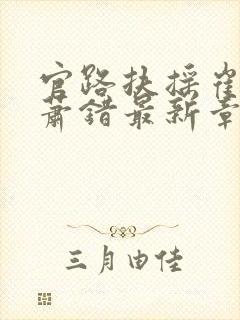 官路扶摇崔
萧错最新章
三月由佳